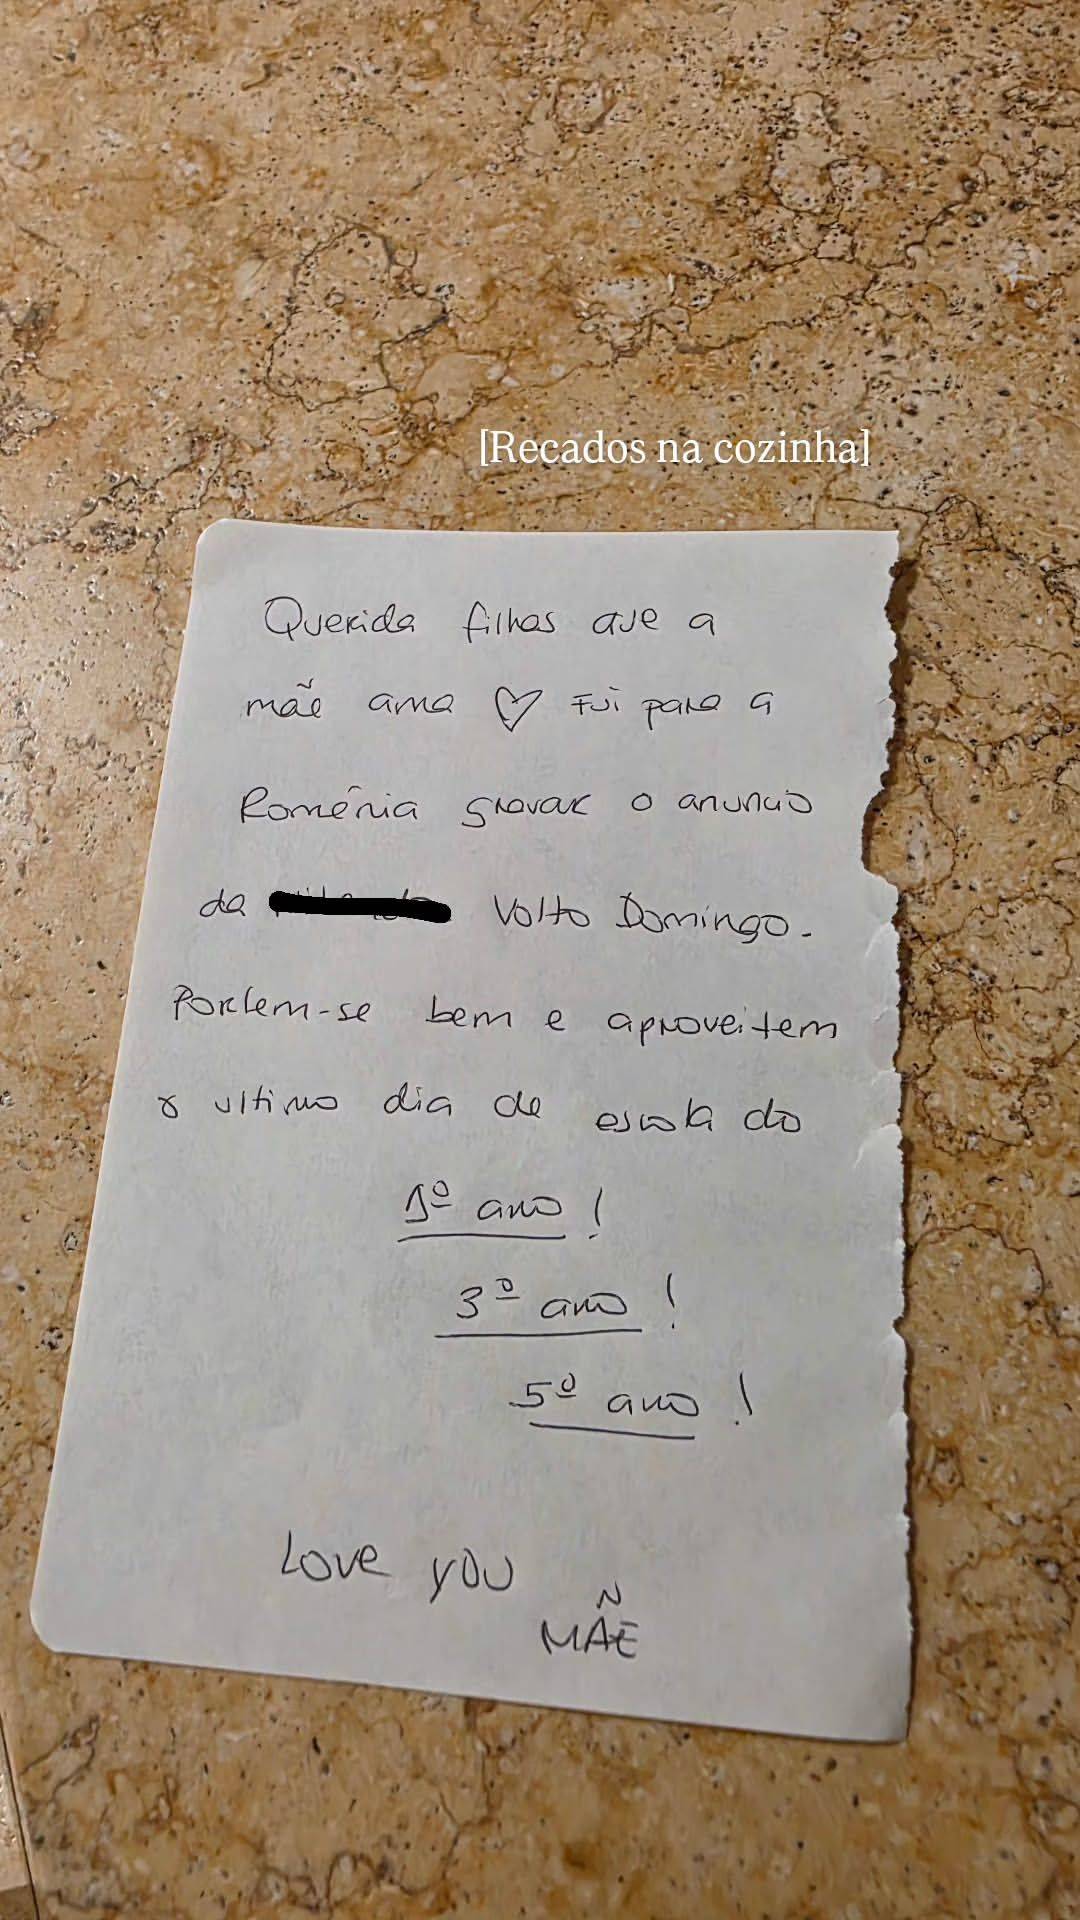 [Recados na cozinha]
Querida filhas que a
mãe ama ♡ Fui para a
Roménia gravar o anuncio
da Volto Domingo.
Portem-se bem e aproveitem
o ultimo dia de escola do
1º ano!
3º ano!
5º ano!
Love you
MÃE